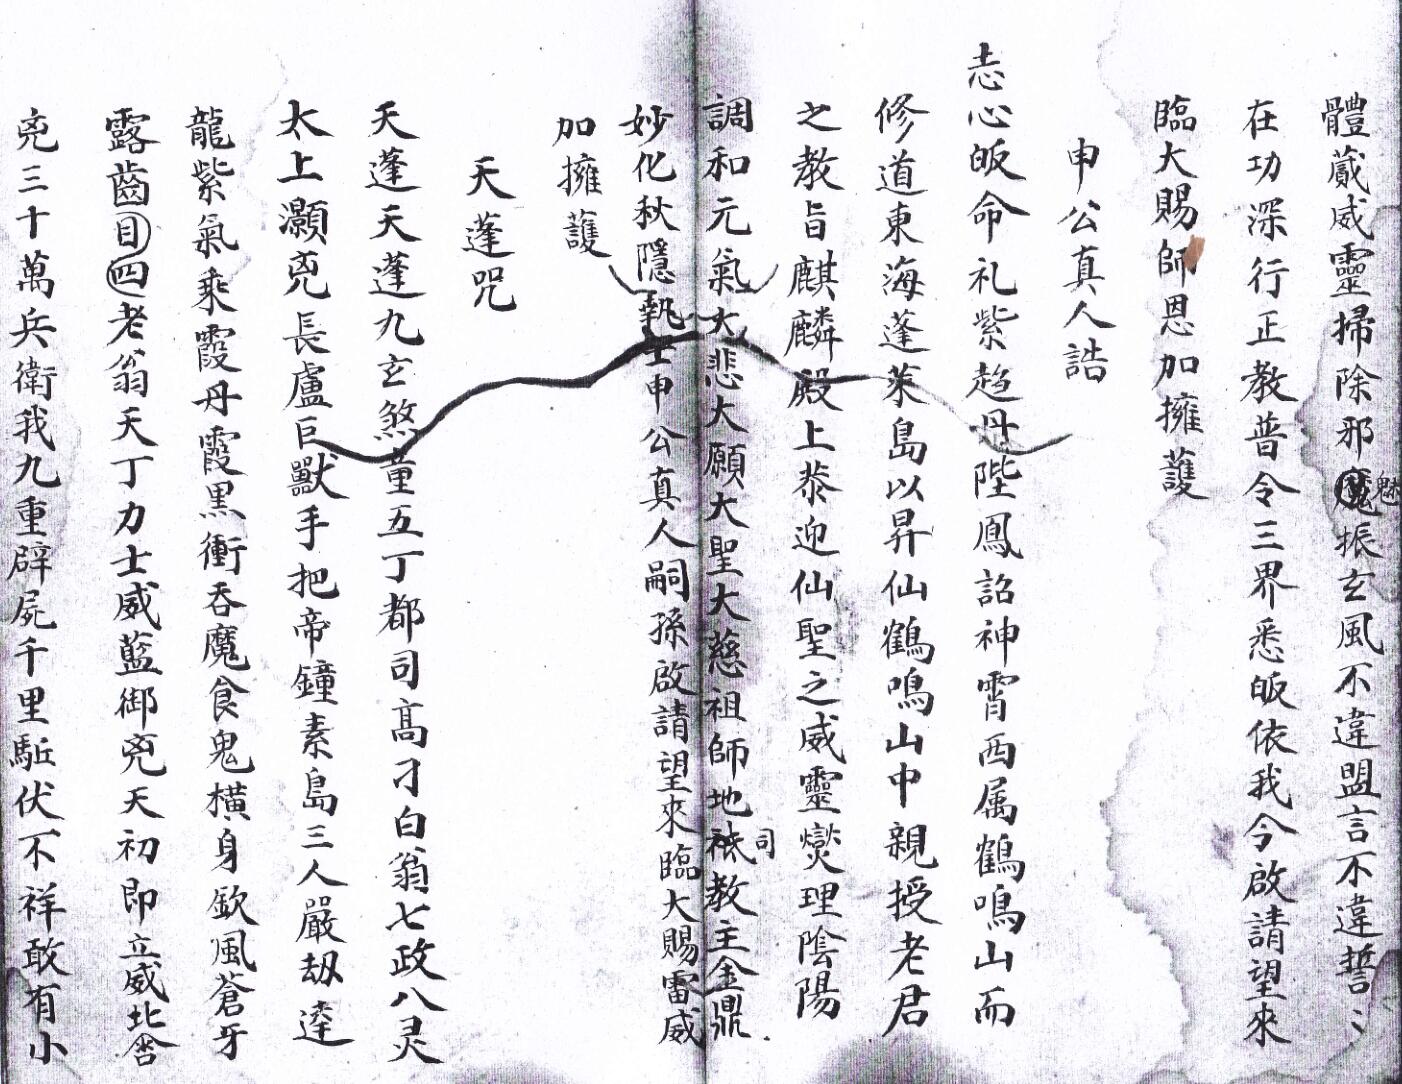 體藏威靈掃除邪魔魅振玄風不違盟言不違誓〻
在功深行正教普令三界悉皈依我今啟請望來
臨大賜師恩加擁護
申公真人誥
志心皈命礼紫趋丹陛鳳詔神霄西属鶴鳴山而
修道東海蓬萊島以昇仙鶴鳴山中親授老君
之教旨麒麟殿上恭迎仙聖之威靈燮理陰陽
調和元氣大悲大願大聖大慈祖師地祇司教主金鼎
妙化秋隱執士申公真人嗣孫啟請望來臨大賜雷威
加擁護
天蓬咒
天蓬天蓬九玄煞童五丁都司高刁白翁七政八灵
太上灝兇長盧巨獸手把帝鐘素島三人嚴刼逹
龍紫氣乘霞丹霞黑衝吞魔食鬼橫身欽風蒼牙
露齒目四老翁天丁力士威藍御兇天初即立威北
兇三十萬兵衛我九重辟屍千里駈伏不祥敢有小